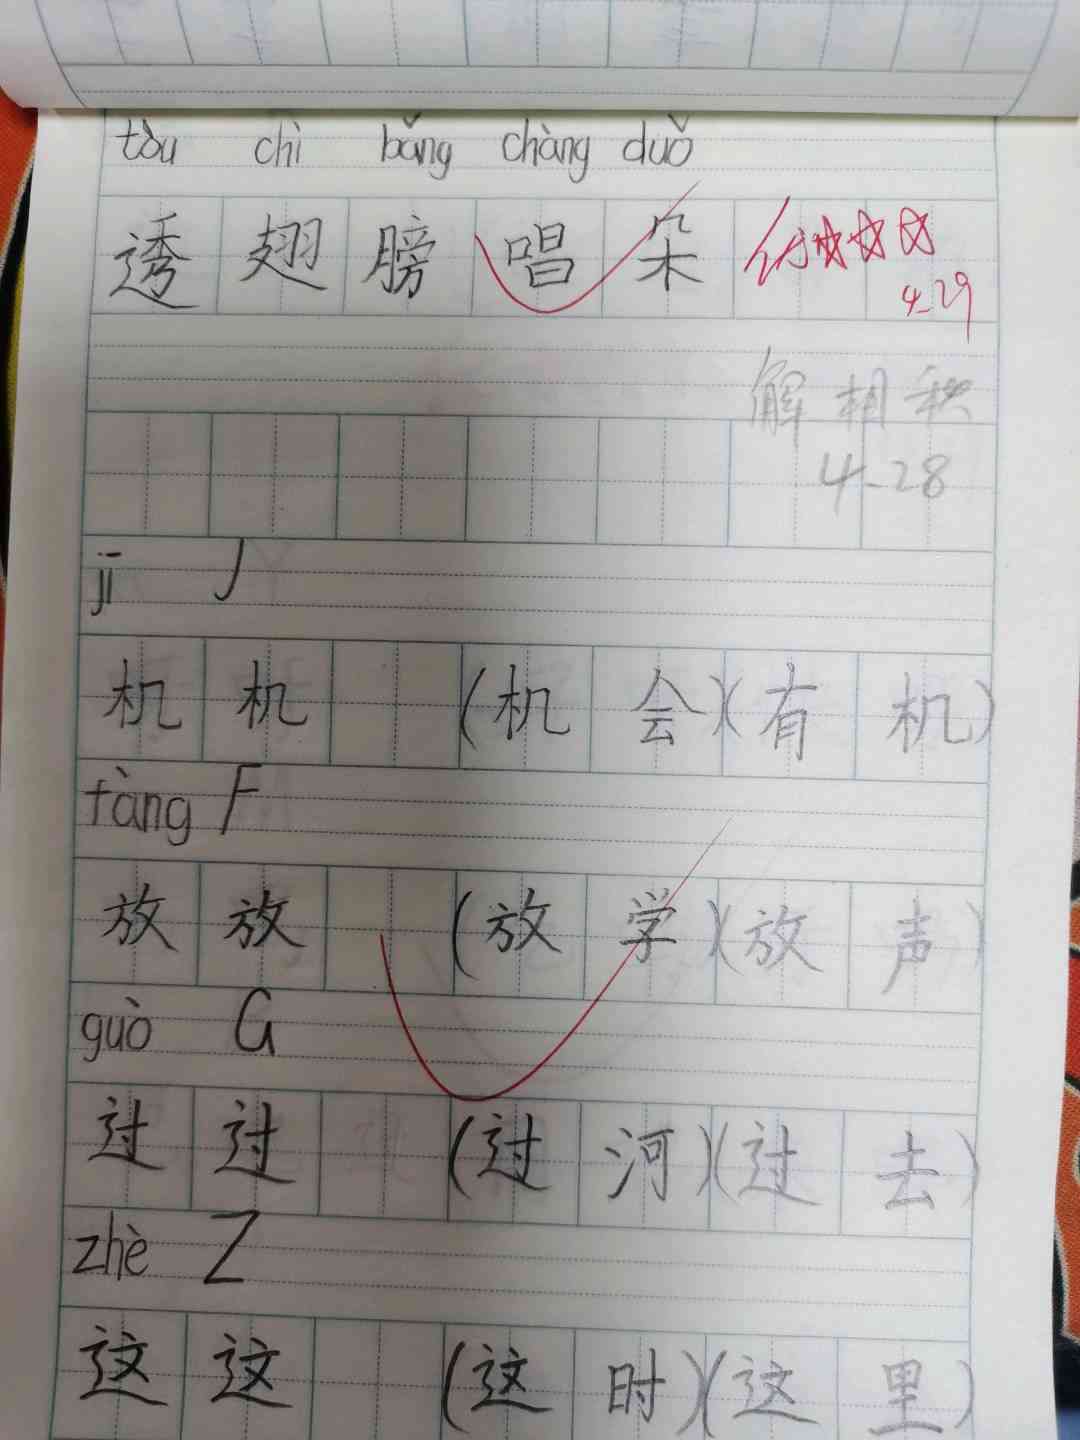 tòu chì bǎng chàng duǒ
透 翅 膀 唱 朵
4-29
解 相 秧
4-28
jī J
机 机 (机 会)(有 机)
fàng F
放 放 (放 学)(放 声)
guò G
过 过 (过 河)(过 去)
zhè Z
这 这 (这 时)(这 里)